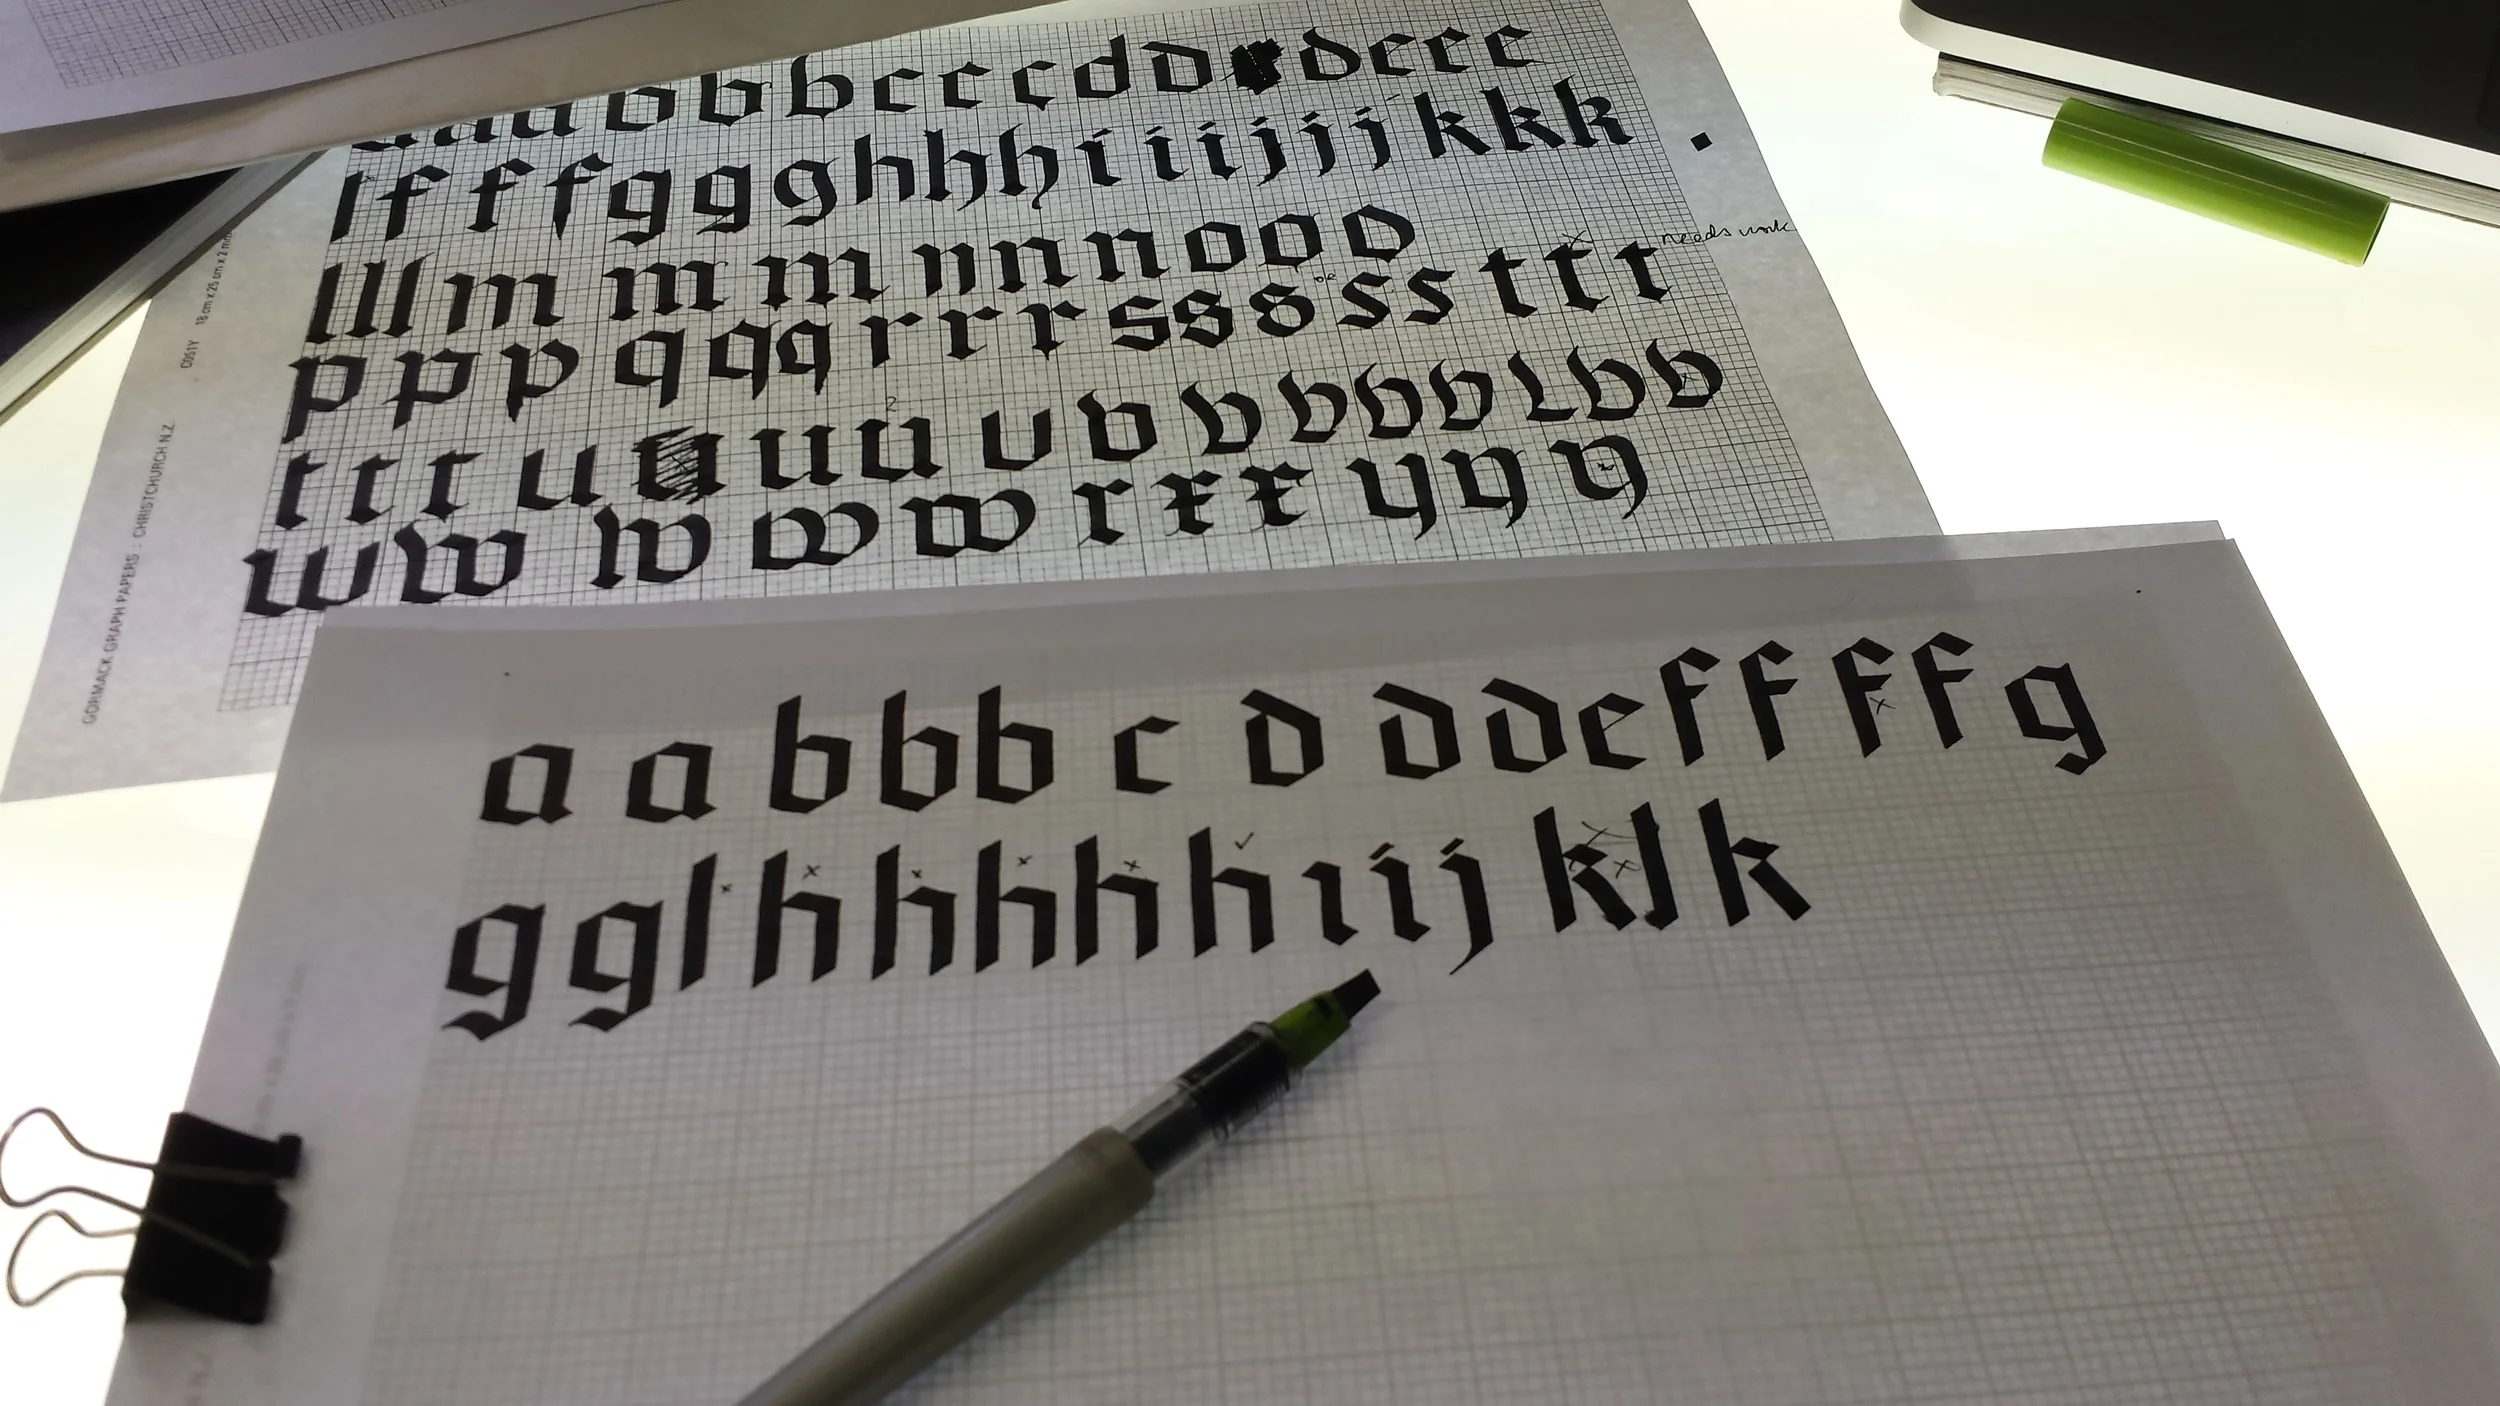 a a u b b b c c c d d d e e e
f f f g g g h h h i i i j j j k k k
l l l m m m n n n o o o
needs work
p p p q q q r r r s s s s s t t t
or
2
t t t u u u u v v v v v v v v
w w w w w x x x y y y
GORMACK GRAPH PAPERS : CHRISTCHURCH N.Z. C051Y 18 cm x 25 cm x 2 mm
a a b b b c d d d e f f f f g
g g l h h h h h ı i j k l k